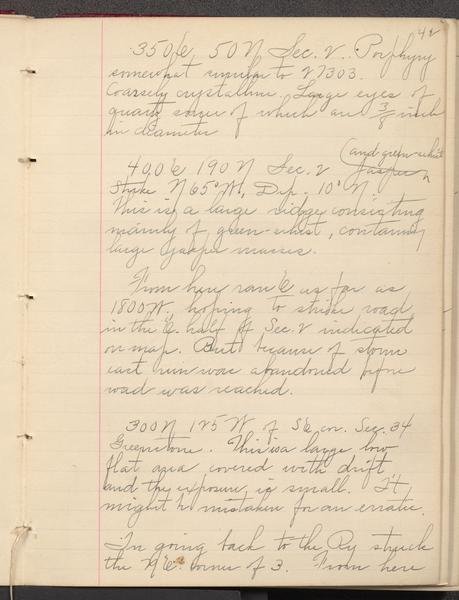 42
350 E, 50 N Sec. 2. Porphyry
somewhat similar to 27303.
Coarsely crystalline. Large eyes of
quartz some of which are 3/8 inch
in diameter
(and green-schist
400 E 190 N Sec. 2 Jasper
Strike N 65° W, Dip 10° N.
This is a large ridge consisting
mainly of green-schist, containing
large jasper masses.
From here ran E as far as
1800 W, hoping to strike road
in the E. half of Sec. 2 indicated
on map. But because of storm
east run was abandoned before
road was reached.
300 N 125 W of SE cor. Sec. 34
Greenstone. This is a large low
flat area covered with drift
and the exposure is small. It
might be mistaken for an erratic.
In going back to the Ry struck
the N.E. corner of 3. From here